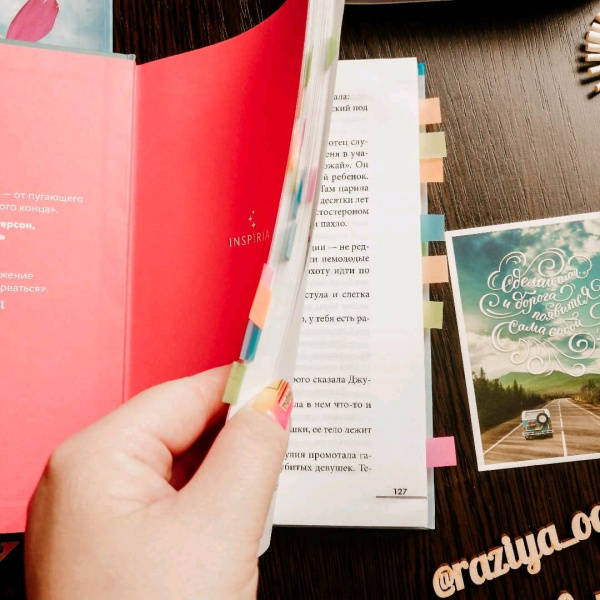 — от пугающего
ого конца».
ерсон,
жение
рваться».
INSPIRIA
ала:
ский под
отец слу-
еня в уча-
ожай». Он
й ребенок.
Там царила
десятки лет
стостероном
и пахло.
ции — не ред-
и немолодые
охоту идти по
стула и слегка
о, у тебя есть ра-
рого сказала Джу-
ла в нем что-то и
шки, ее тело лежит
упия промотала га-
убитых девушек. Те-
127
Сделай шаг
и дорога
появится
Сама собой
@raziya_oc